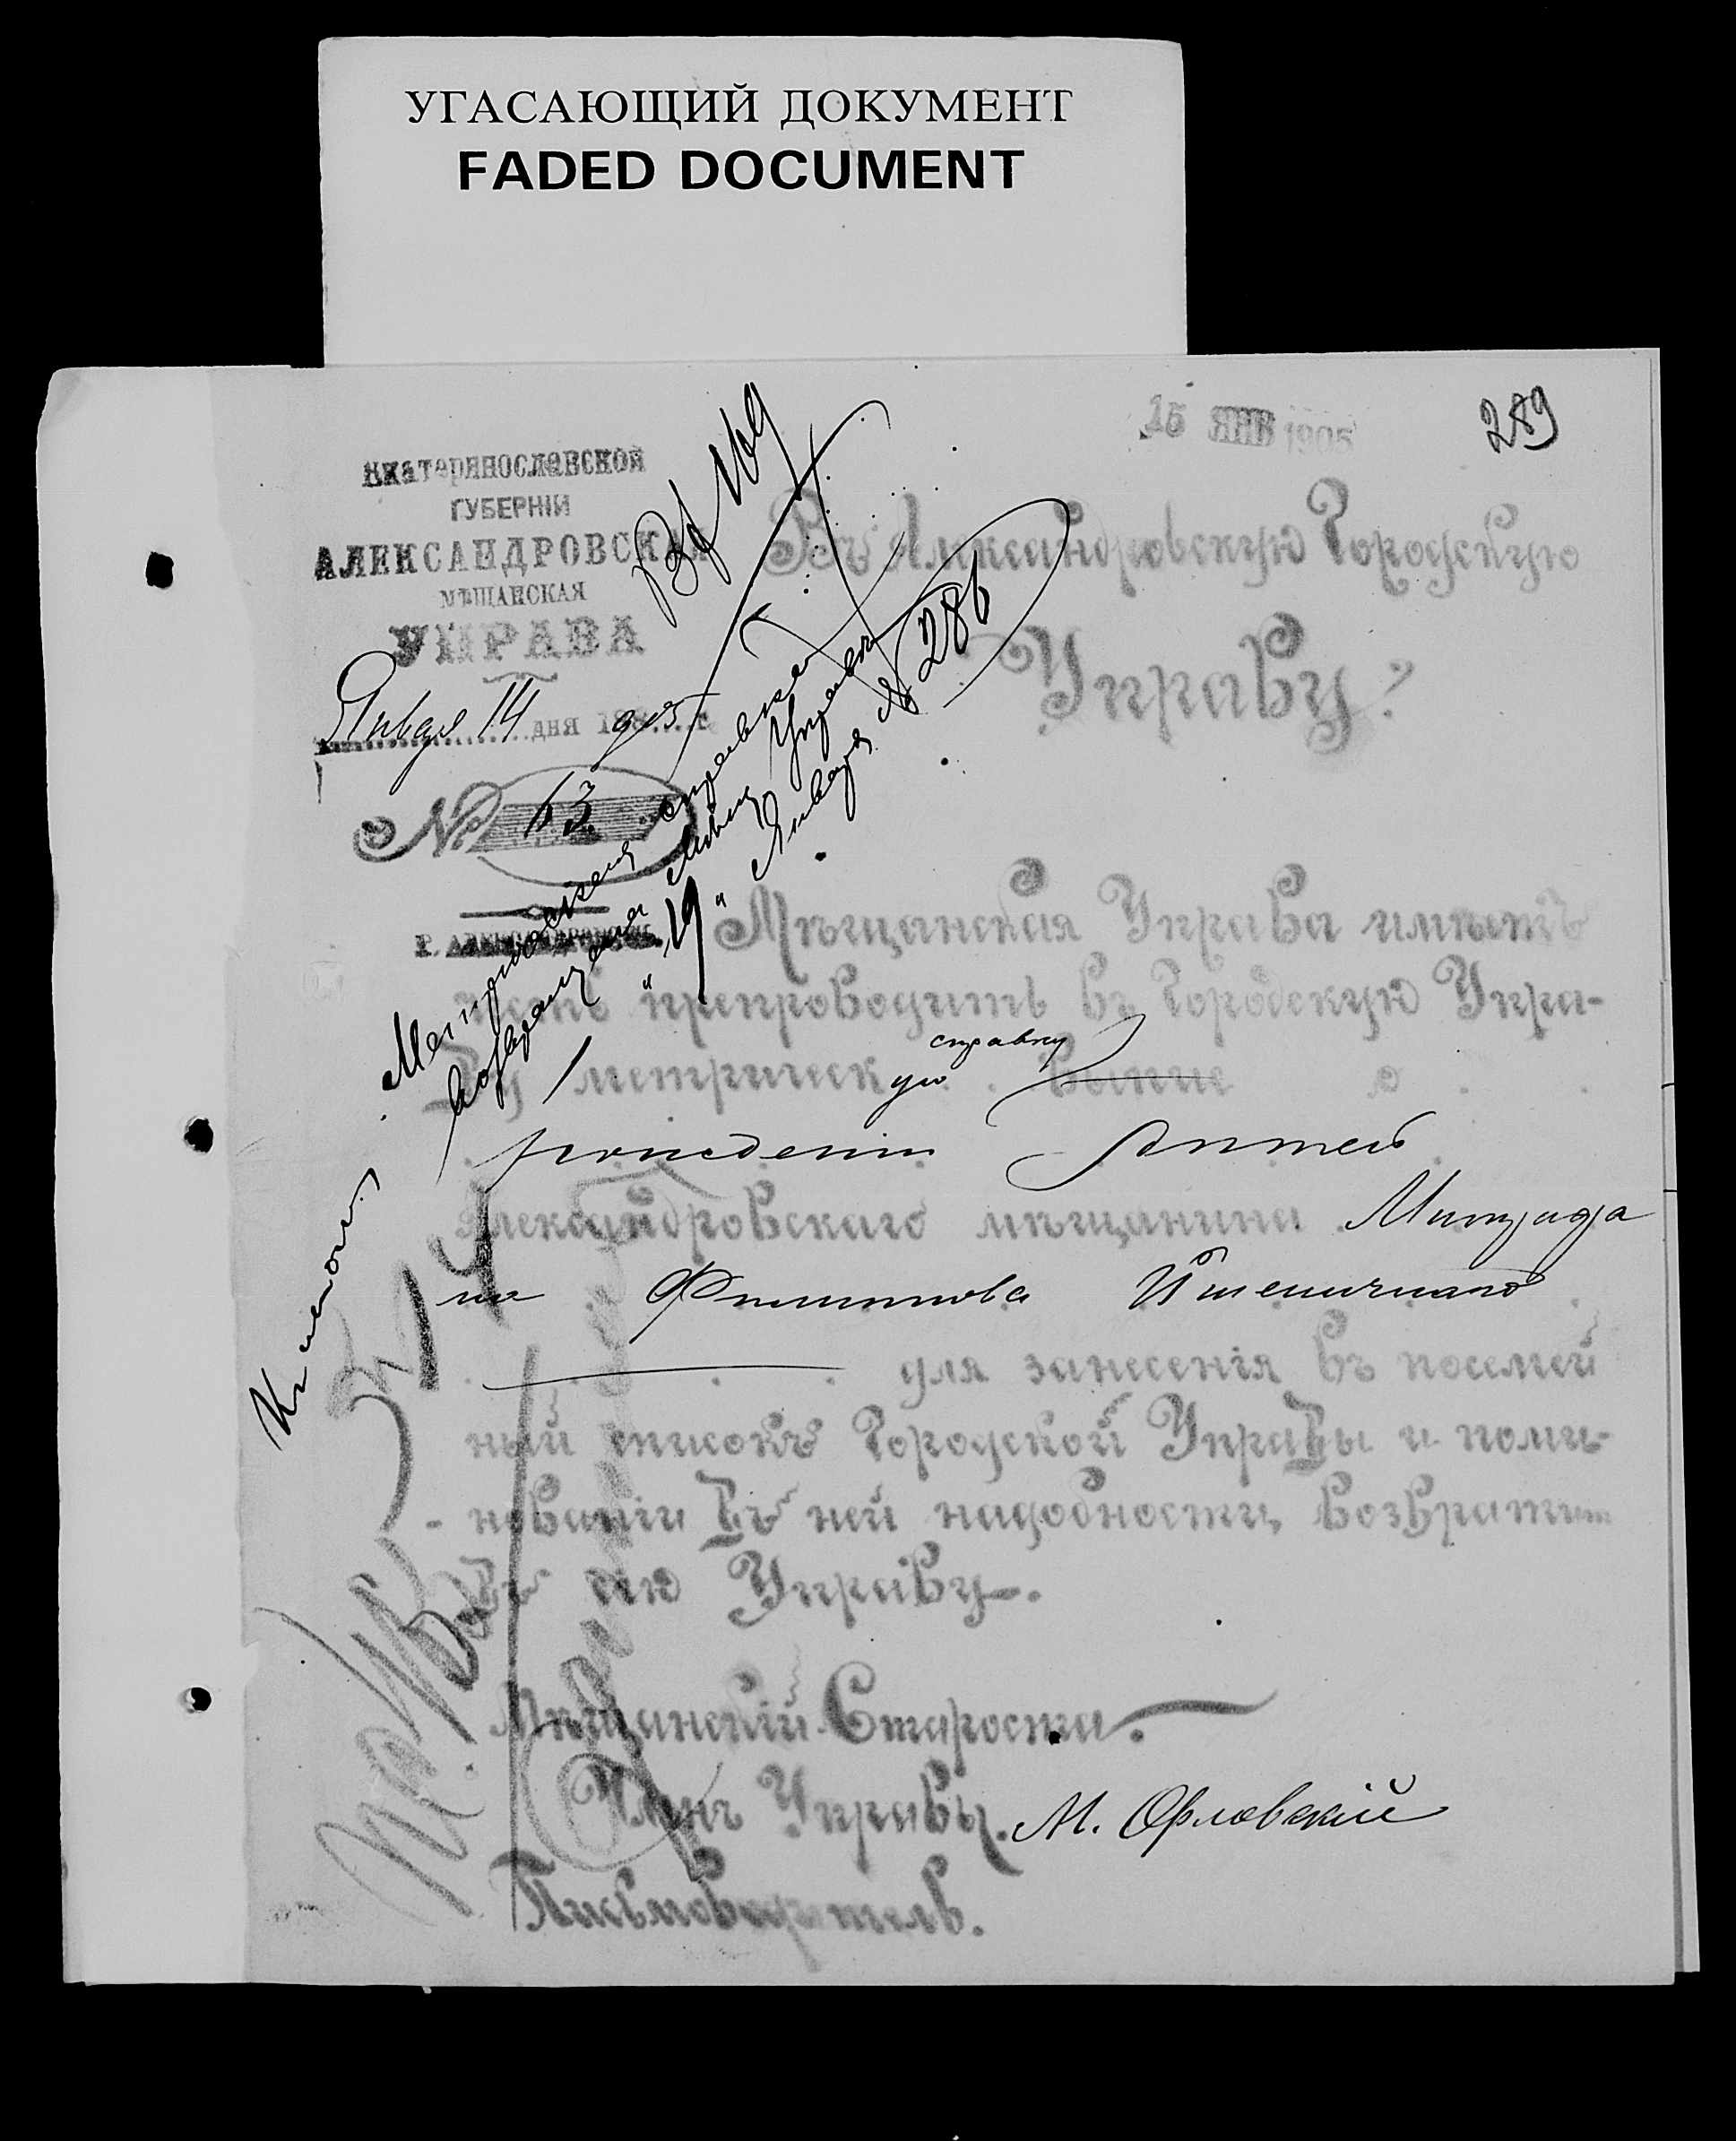 УГАСАЮЩИЙ ДОКУМЕНТ
FADED DOCUMENT
15 ЯНВ 1905
289
Екатеринославской
ГУБЕРНІИ
АЛЕКСАНДРОВСКАЯ
МѢЩАНСКАЯ
УПРАВА
Января 14 дня 188 905 г
№ 63
Г. АЛЕКСАНДРОВСКЪ
Въ Александровскую Городскую
Управу.
Метрическая справка
возвращена Мѣщ Управѣ
"19" Января № 286
Мѣщанская Управа имѣетъ
честь препроводить въ Городскую Упра-
ву метрическую справку
рожденіи дѣтей
Александровскаго мѣщанина
на Филиппова Пшеничнаго
для занесенія въ посемей
ный списокъ Городской Управы и поми-
нованіи въ ней надобности, возвратить
сію Управу.
Мѣщанскій Староста
Членъ Управы. М. Орловскій
Письмоводитель.